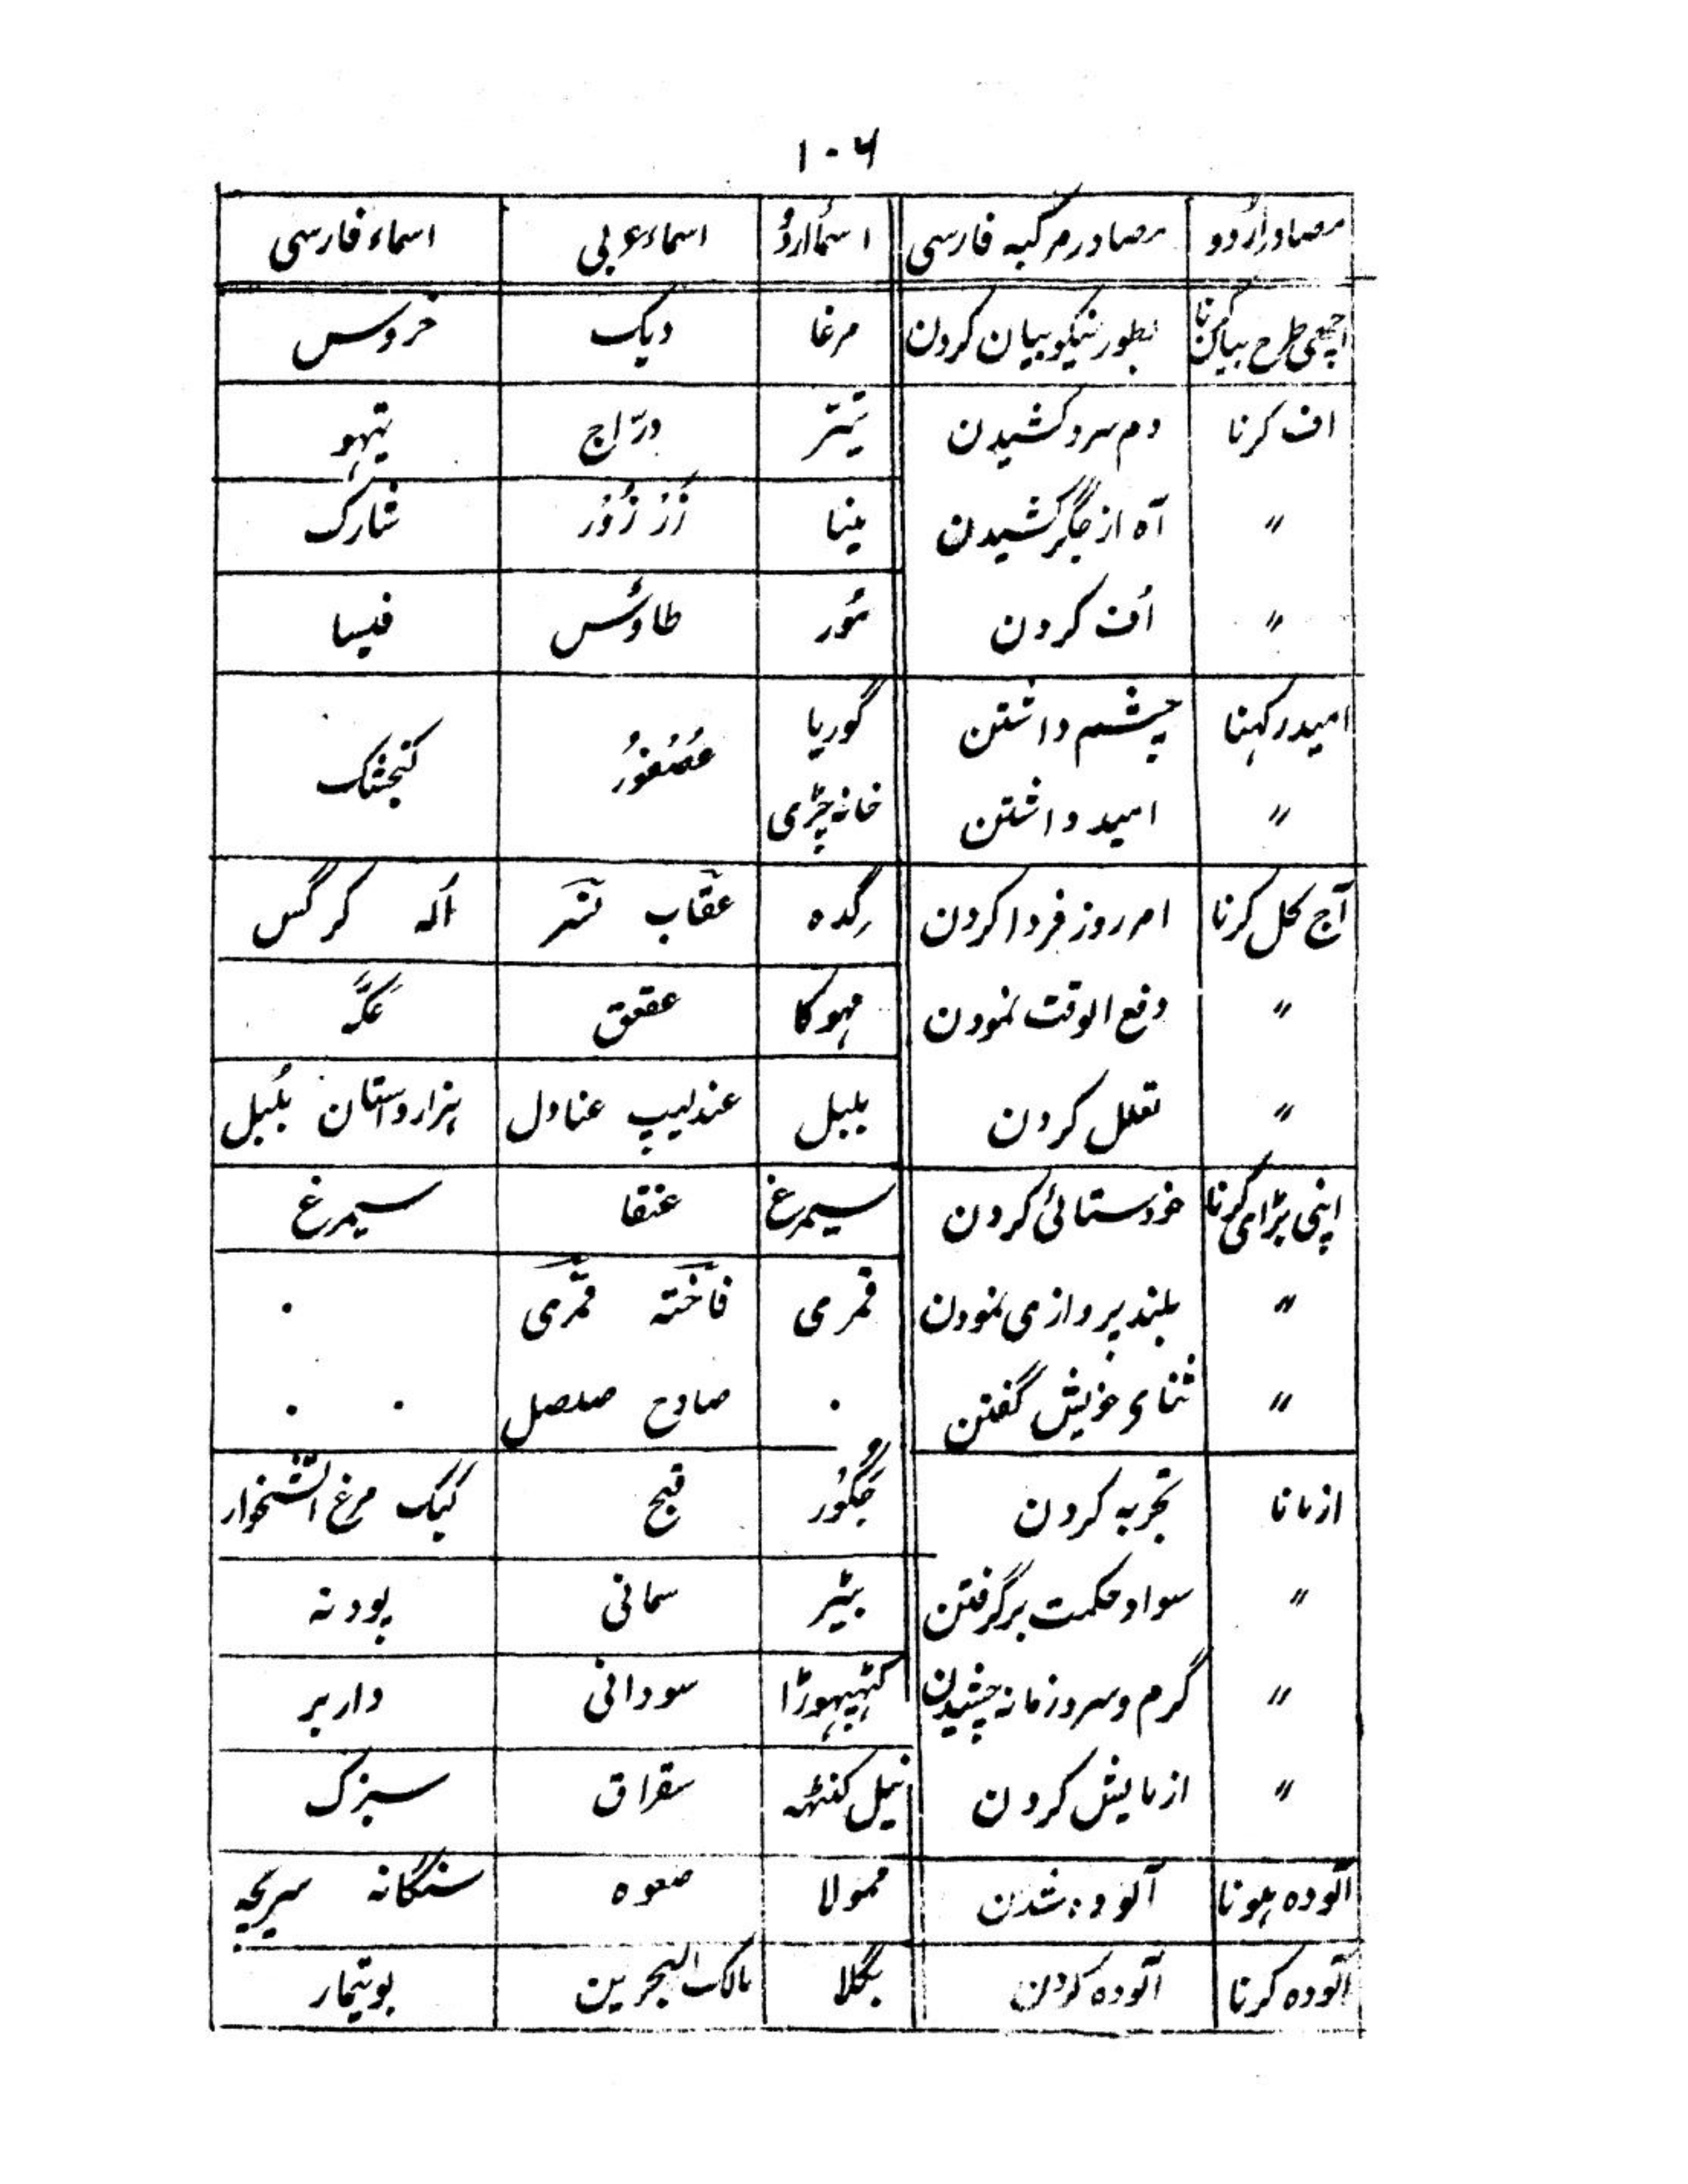 ۱۰۶
مصادر اردو مصادر مرکبہ فارسی اسماء اردو اسماء عربی اسماء فارسی
اچھی طرح بیان کرنا بطور نیکو بیان کردن مرغا دیک خروس
اف کرنا دم سرد کشیدن تیتر درّاج تیہو
〃 آہ از جگر کشیدن مینا زُرْزُوْر شارک
〃 اُف کردن مُور طاؤس فیسا
امید رکہنا چشم داشتن گوریا عُصْفُوْرُ کنجشک
〃 امید داشتن خانہ چڑی
آج کل کرنا امروز فردا کردن گِدہ عقاب نسر اَلہ کرگس
〃 دفع الوقت نمودن مہوکا عقعق عَکَّہ
〃 تعلل کردن بلبل عندلیپ عنادل ہزار داستان بُلبُل
اپنی بڑای کرنا خودستائی کردن سیمرغ عنقا سیمرغ
〃 بلند پروازی نمودن قمری فاختہ قمری ۰
〃 ثنای خویش گفتن ۰ صادح صلصل ۰ ۰
ازمانا تجربہ کردن چَکُوْر قبج کبک مرغ آتشخوار
〃 سواد حکمت برگرفتن بٹیر سمانی پودنہ
〃 گرم و سرد زمانہ چشیدن کٹہپہوڑا سودانی داربر
〃 ازمایش کردن نیل کنٹہہ سقراق سبزک
آلودہ ہونا آلودہ شدن ممولا صعوہ سنگانہ سریچہ
آلودہ کرنا آلودہ کردن بگلا مالک البحرین بوتیمار